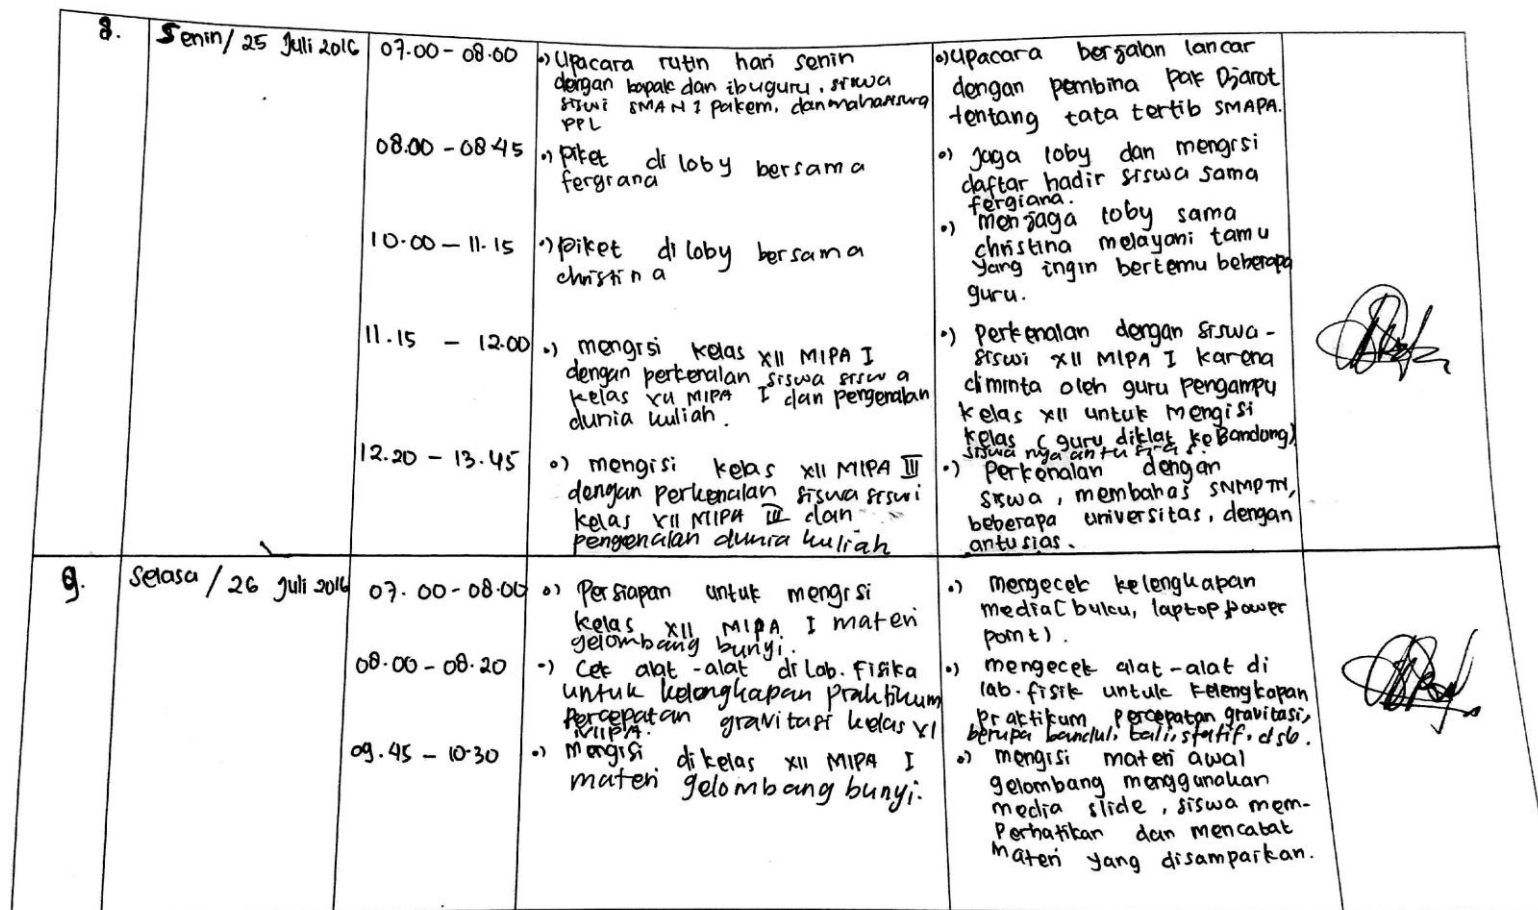 8.
Senin/ 25 Juli 2016
07.00 - 08.00
•) Upacara rutin hari senin
dengan bapak dan ibu guru, siswa
siswi SMAN 1 Pakem, dan mahasiswa
PPL
•) Upacara berjalan lancar
dengan pembina Pak Djarot
tentang tata tertib SMAPA.
08.00 - 08.45
•) Piket di loby bersama
fergiana
•) Jaga loby dan mengisi
daftar hadir siswa sama
fergiana.
10.00 - 11.15
•) piket di loby bersama
christina
•) Menjaga loby sama
christina melayani tamu
yang ingin bertemu beberapa
guru.
11.15 - 12.00
•) mengisi kelas XII MIPA I
dengan perkenalan siswa siswa
kelas XII MIPA I dan pengenalan
dunia kuliah.
•) Perkenalan dengan siswa-
siswi XII MIPA I karena
diminta oleh guru pengampu
kelas XII untuk mengisi
kelas (guru diklat ke Bandung)
siswa nya antusias.
12.20 - 13.45
•) mengisi kelas XII MIPA III
dengan perkenalan siswa siswi
kelas XII MIPA III dan
pengenalan dunia kuliah
•) Perkenalan dengan
siswa, membahas SNMPTN,
beberapa universitas, dengan
antusias.
9.
Selasa / 26 Juli 2016
07.00 - 08.00
•) Persiapan untuk mengisi
kelas XII MIPA I materi
gelombang bunyi.
•) mengecek kelengkapan
media (buku, laptop, power
point).
08.00 - 08.20
-) Cek alat-alat di Lab. Fisika
untuk kelengkapan Praktikum
Percepatan gravitasi kelas XI
MIPA.
•) mengecek alat-alat di
lab. fisik untuk kelengkapan
praktikum percepatan gravitasi,
berupa bandul, tali, statif, dsb.
09.45 - 10.30
•) Mengisi di kelas XII MIPA I
materi gelombang bunyi.
•) mengisi materi awal
gelombang menggunakan
media slide, siswa mem-
perhatikan dan mencatat
materi yang disampaikan.